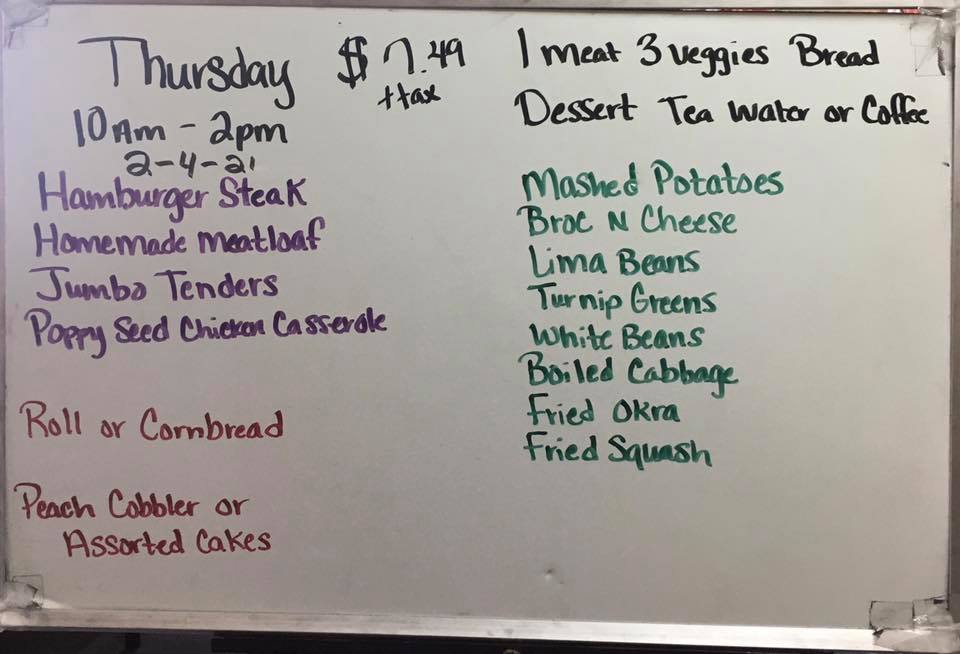 Thursday $7.49
+tax
10Am - 2pm
2-4-21
1 meat 3 veggies Bread
Dessert Tea Water or Coffee
Hamburger Steak
Homemade meatloaf
Jumbo Tenders
Poppy Seed Chicken Casserole
Roll or Cornbread
Peach Cobbler or
Assorted Cakes
Mashed Potatoes
Broc N Cheese
Lima Beans
Turnip Greens
White Beans
Boiled Cabbage
Fried Okra
Fried Squash